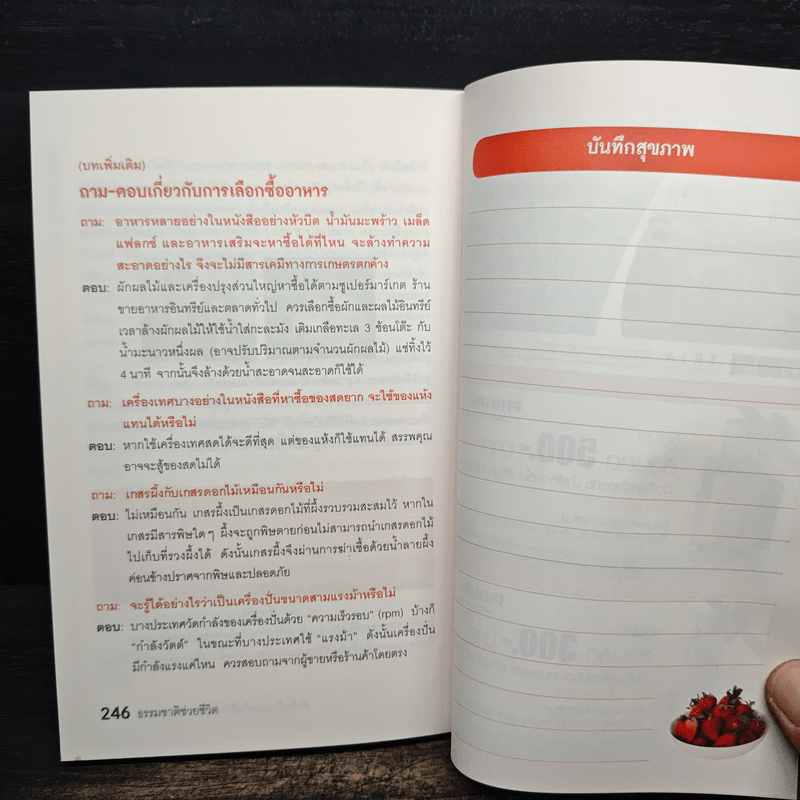 (บทเพิ่มเติม)
ถาม-ตอบเกี่ยวกับการเลือกซื้ออาหาร
ถาม: อาหารหลายอย่างในหนังสืออย่างหัวบีต น้ำมันมะพร้าว เมล็ด
แฟลกซ์ และอาหารเสริมจะหาซื้อได้ที่ไหน จะล้างทำความ
สะอาดอย่างไร จึงจะไม่มีสารเคมีทางการเกษตรตกค้าง
ตอบ: ผักผลไม้และเครื่องปรุงส่วนใหญ่หาซื้อได้ตามซูเปอร์มาร์เกต ร้าน
ขายอาหารอินทรีย์และตลาดทั่วไป ควรเลือกซื้อผักและผลไม้อินทรีย์
เวลาล้างผักผลไม้ให้ใช้น้ำใส่กะละมัง เติมเกลือทะเล 3 ช้อนโต๊ะ กับ
น้ำมะนาวหนึ่งผล (อาจปรับปริมาณตามจำนวนผักผลไม้) แช่ทิ้งไว้
4 นาที จากนั้นจึงล้างด้วยน้ำสะอาดจนสะอาดก็ใช้ได้
ถาม: เครื่องเทศบางอย่างในหนังสือที่หาซื้อของสดยาก จะใช้ของแห้ง
แทนได้หรือไม่
ตอบ: หากใช้เครื่องเทศสดได้จะดีที่สุด แต่ของแห้งก็ใช้แทนได้ สรรพคุณ
อาจจะสู้ของสดไม่ได้
ถาม: เกสรผึ้งกับเกสรดอกไม้เหมือนกันหรือไม่
ตอบ: ไม่เหมือนกัน เกสรผึ้งเป็นเกสรดอกไม้ที่ผึ้งรวบรวมสะสมไว้ หากใน
เกสรมีสารพิษใด ๆ ผึ้งจะถูกพิษตายก่อนไม่สามารถนำเกสรดอกไม้
ไปเก็บที่รวงผึ้งได้ ดังนั้นเกสรผึ้งจึงผ่านการฆ่าเชื้อด้วยน้ำลายผึ้ง
ค่อนข้างปราศจากพิษและปลอดภัย
ถาม: จะรู้ได้อย่างไรว่าเป็นเครื่องปั่นขนาดสามแรงม้าหรือไม่
ตอบ: บางประเทศวัดกำลังของเครื่องปั่นด้วย "ความเร็วรอบ" (rpm) บ้างก็
"กำลังวัตต์" ในขณะที่บางประเทศใช้ "แรงม้า" ดังนั้นเครื่องปั่น
มีกำลังแรงแค่ไหน ควรสอบถามจากผู้ขายหรือร้านค้าโดยตรง
246 ธรรมชาติช่วยชีวิต
บันทึกสุขภาพ